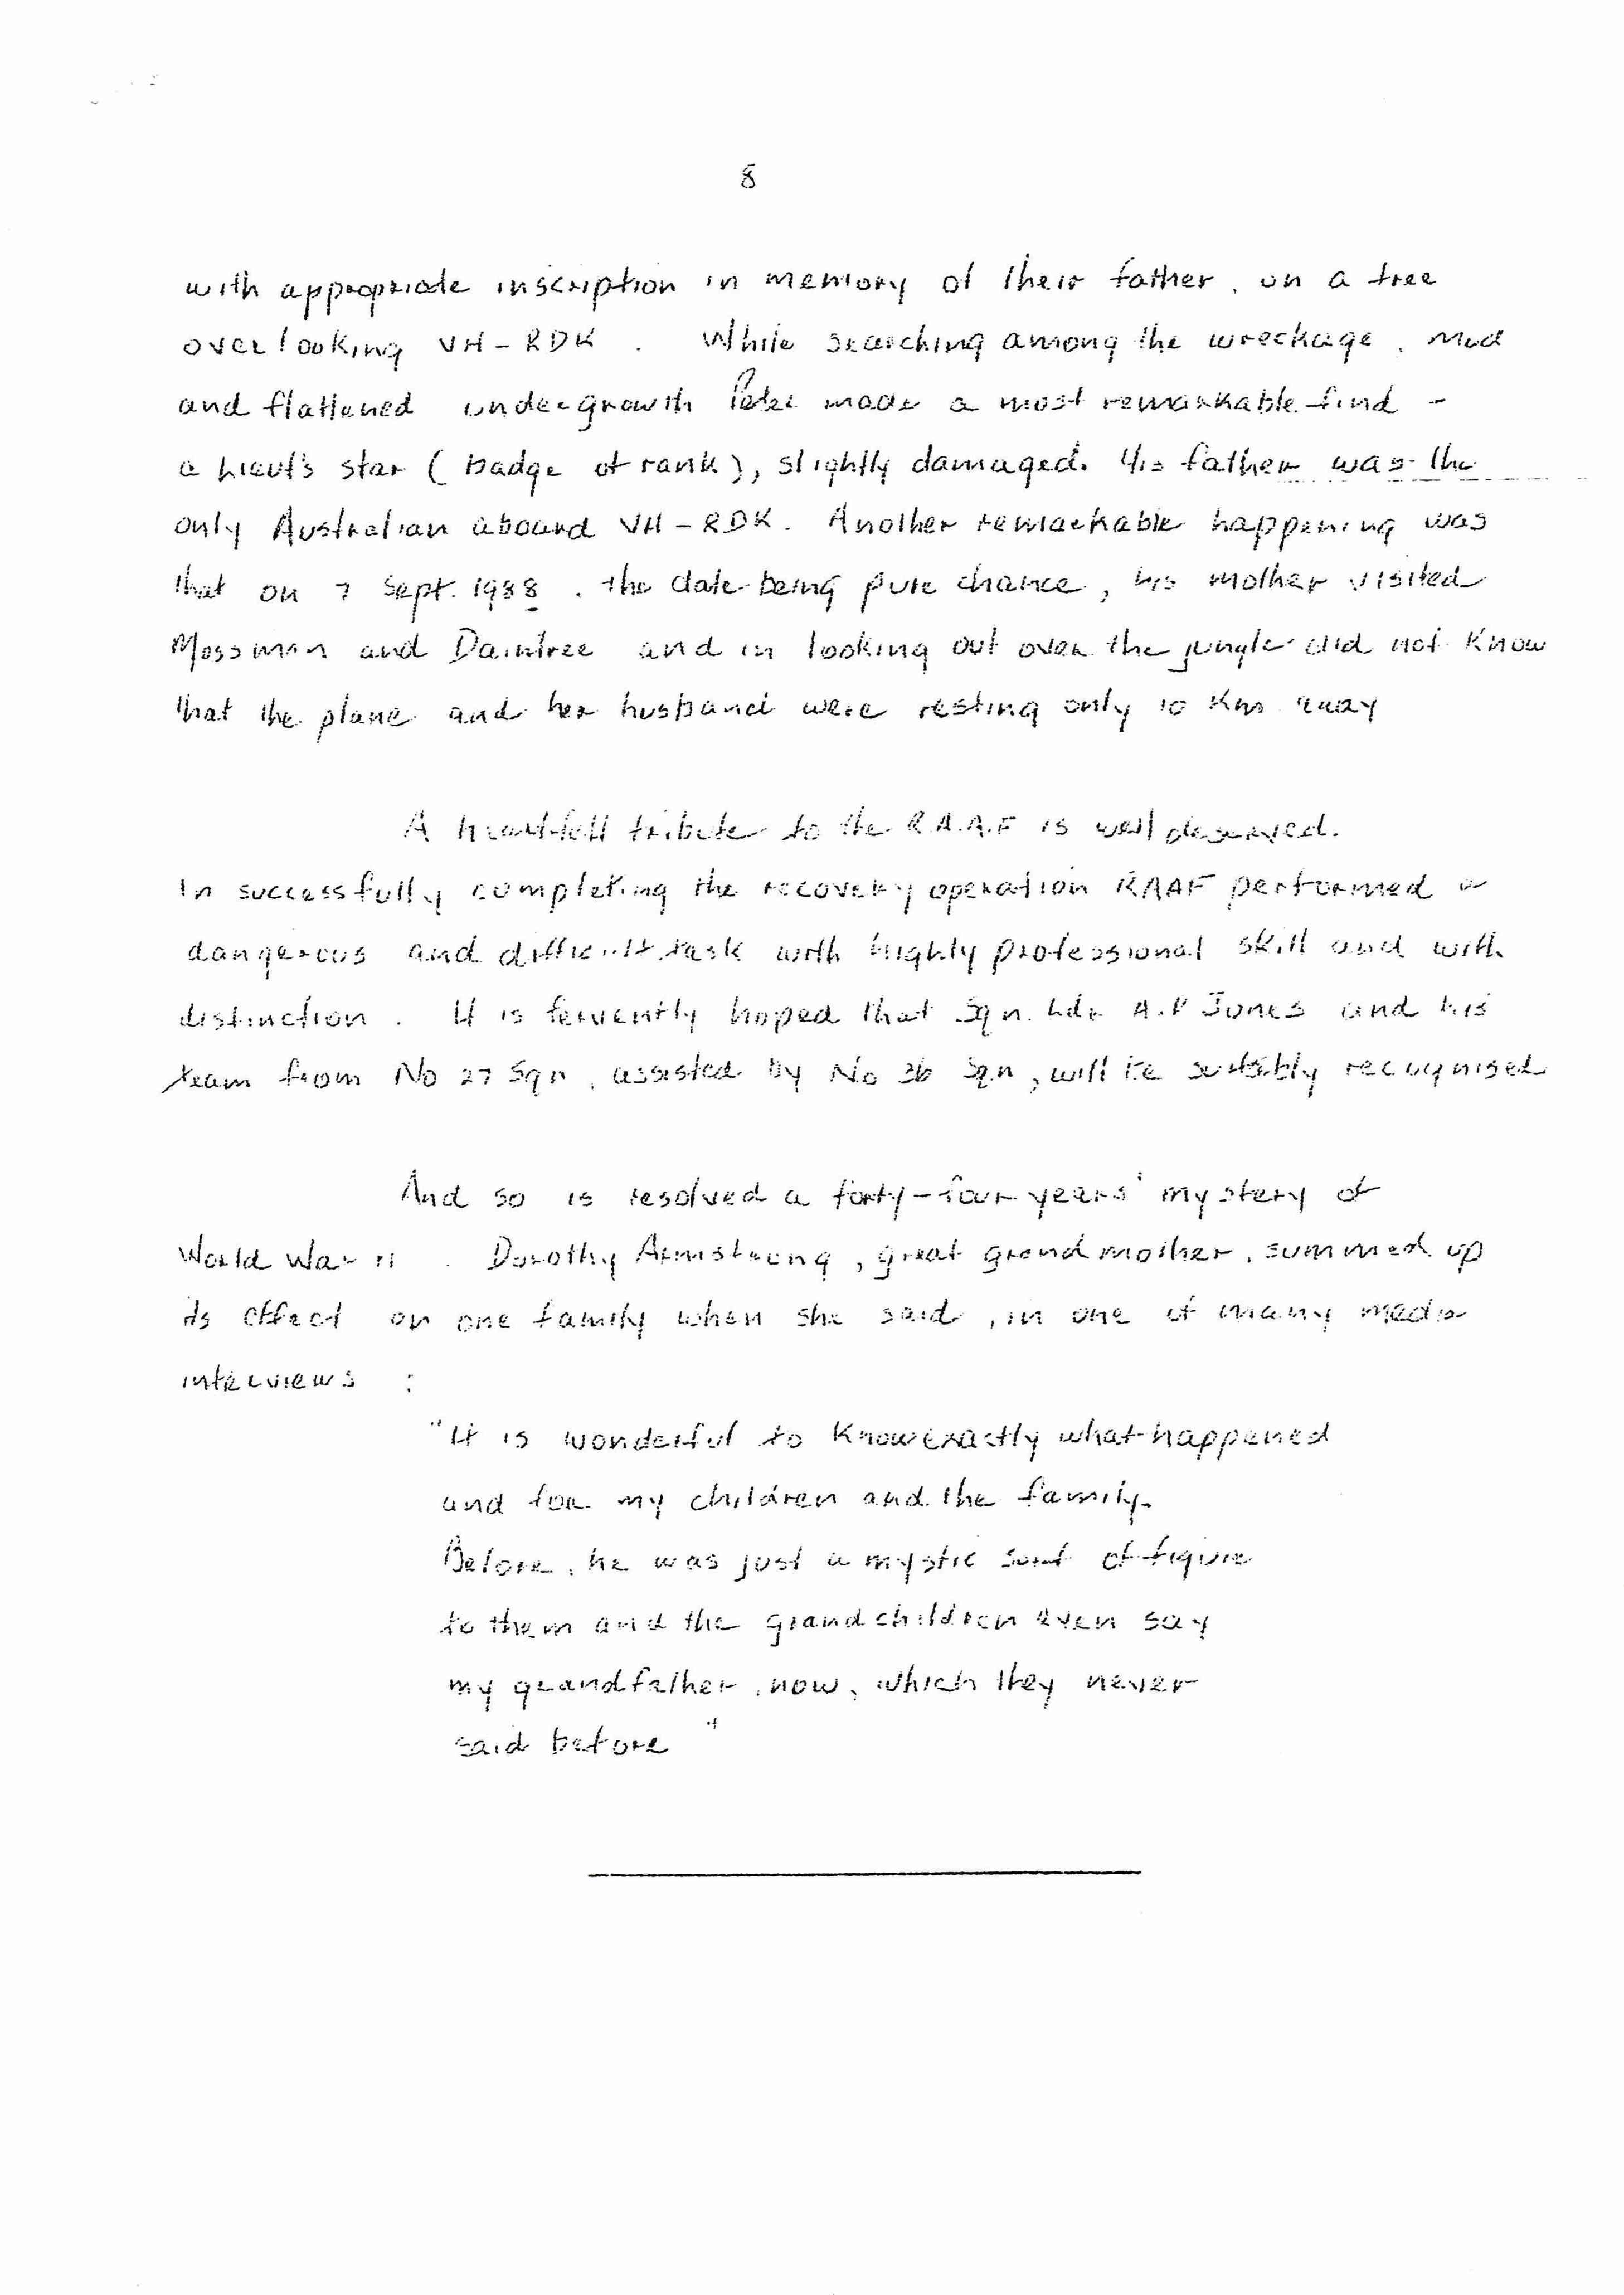 8
with appropriate inscription in memory of their father, on a tree
overlooking VH-RDK. While searching among the wreckage, mud
and flattened undergrowth Peter made a most remarkable find -
a Lieut's star (badge of rank), slightly damaged. His father was the
only Australian aboard VH-RDK. Another remarkable happening was
that on 7 Sept. 1988, the date being pure chance, his mother visited
Mossman and Daintree and in looking out over the jungle did not know
that the plane and her husband were resting only 10 Km away
A heartfelt tribute to the R.A.A.F is well deserved.
In successfully completing the recovery operation RAAF performed a
dangerous and difficult task with highly professional skill and with
distinction. It is fervently hoped that Sqn. Ldr A.P Jones and his
team from No 27 Sqn, assisted by No 36 Sqn, will be suitably recognised
And so is resolved a forty-four years' mystery of
World War II. Dorothy Armstrong, great grandmother, summed up
its effect on one family when she said, in one of many media
interviews :
"It is wonderful to know exactly what happened
and for my children and the family.
Before, he was just a mystic sort of figure
to them and the grandchildren even say
my grandfather, now, which they never
said before"